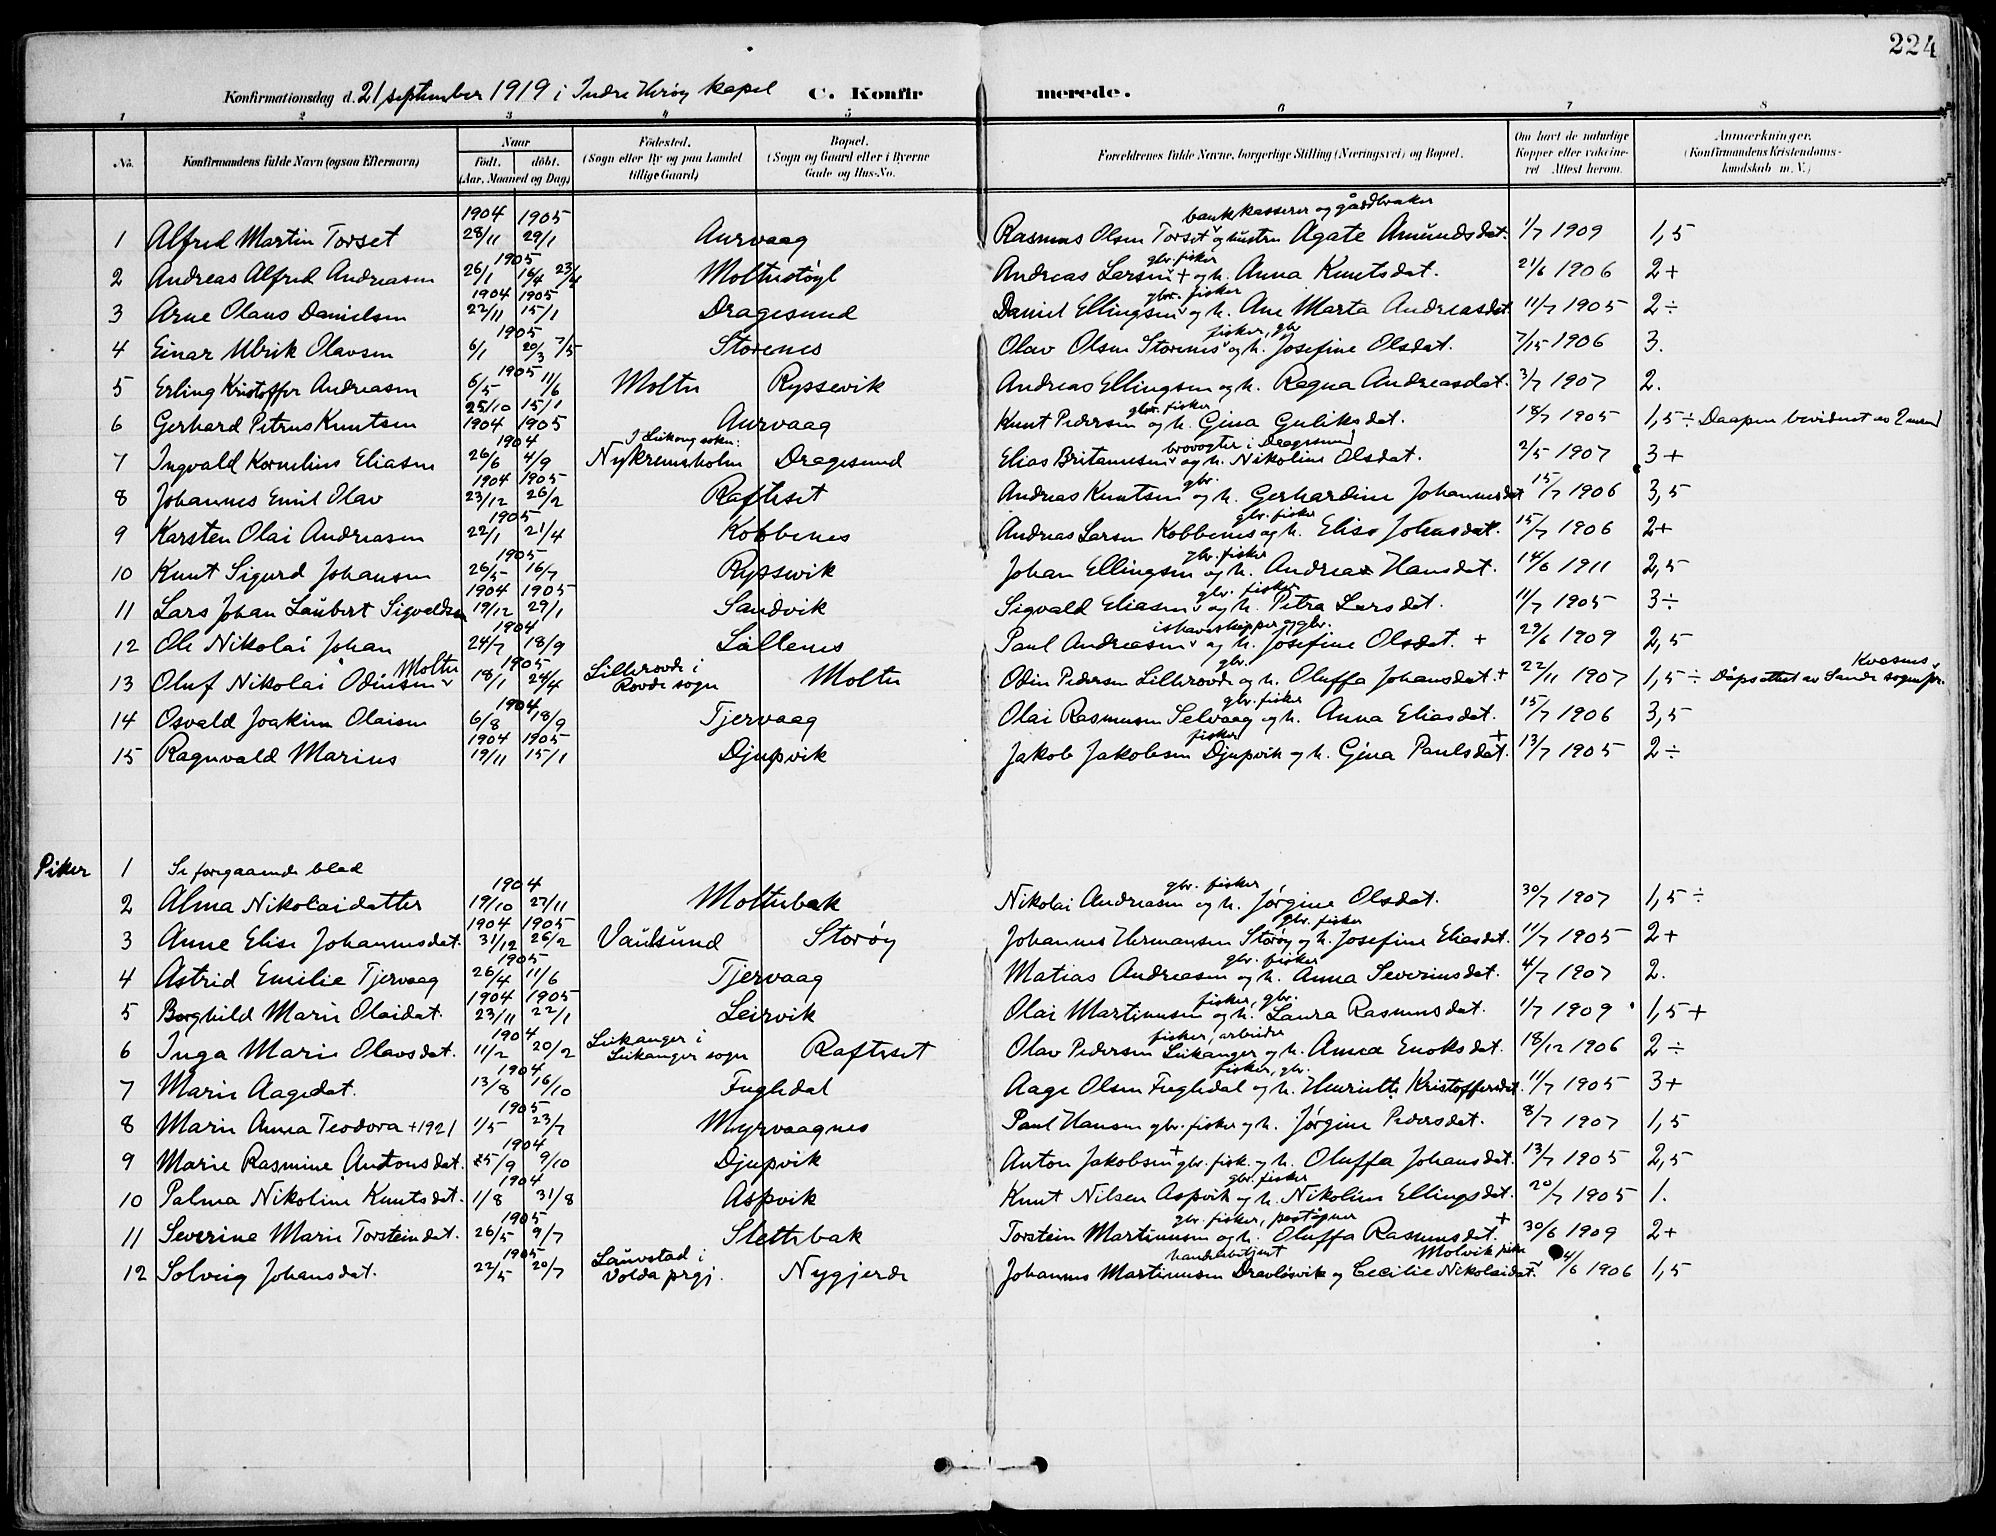 224
Konfirmationsdag d. 21 september 1919 i Indre Herøy kapel C. Konfirmerede.
1 2 3 4 5 6 7 8
No. Konfirmandens fulde Navn (ogsaa Efternavn) Naar født. døbt. (Aar, Maaned og Dag) Fødested. (Sogn eller By og paa Landet tillige Gaard) Bopæl. (Sogn og Gaard eller i Byerne Gade og Hus-No. Forældrenes fulde Navne, borgerlige Stilling (Næringsvei) og Bopæl. Om havt de naturlige Kopper eller vakcineret Attest herom. Anmærkninger. (Konfirmandens Kristendomskundskab m. V.)
1 Alfred Martin Torset 1904 28/11 1905 29/1 Aurvaag Rasmus Olsen Torset bankkasserer og gårdbruker og hustru Agate Amundsdat. 1/7 1909 1,5
2 Andreas Alfred Andreasen 1905 26/1 16/4 23/4 Moltustøyl Andreas Larsen + gbr. fisker og h. Anna Knutsdat. 21/6 1906 2+
3 Arne Olaus Danielsen 1904 22/11 1905 15/1 Dragesund Daniel Ellingsen gbr. fisker og h. Ane Marta Andreasdat. 11/7 1905 2÷
4 Einar Ulrik Olavsen 1905 6/1 20/3 7/5 Storenes Olav Olsen Storenes fisker, gbr og h. Josefine Olsdat. 7/15 1906 3.
5 Erling Kristoffer Andreasen 1905 6/5 11/6 Moltu Ryssevik Andreas Ellingsen og h. Ragna Andreasdat. 3/7 1907 2.
6 Gerhard Petrus Knutsen 25/10 1904 15/1 1905 Aurvaag Knut Pedersen gbr. fisker og h. Gina Guliksdat. 18/7 1905 1,5÷ Daapen bevidnet av 2 mænd
7 Ingvald Kornelius Eliasen 1904 26/6 4/9 I Leikong sokn: Nykremsholm Dragesund Elias Britanusen brovogter i Dragesund og h. Nikoline Olsdat. 2/5 1907 3+
8 Johannes Emil Olav 1904 23/12 1905 26/2 Rafteset Andreas Knutsen gbr. og h. Gerhardine Johannesdat 15/7 1906 3,5
9 Karsten Olai Andreasen 1905 22/1 21/4 Kobbenes Andreas Larsen Kobbenes gbr. fisker og h. Elise Johnsdat. 15/7 1906 2+
10 Knut Sigurd Johansen 1905 26/5 16/7 Ryssevik Johan Ellingsen gbr. fisker og h. Andrea Hansdat. 14/6 1911 2,5
11 Lars Johan Laubert Sigvaldsen 1904 19/12 1905 29/1 Sandvik Sigvald Eliasen gbr. fisker og h. Petra Larsdat. 11/7 1905 3÷
12 Ole Nikolai Johan 1904 24/7 18/9 Lillenes Paul Andreasen ishavsskipper og gbr. og h. Josefine Olsdat. + 29/6 1909 2,5
13 Oluf Nikolai Odinsen Moltu 1905 18/1 24/4 Lillerovde i Rovde sogn Moltu Odin Pedersen Lillerovde gbr. og h. Oluffa Johansdat. + 22/11 1907 1,5÷ Dåpsattest av Sande sognepr.
14 Osvald Joakim Olaisen 1904 6/8 18/9 Tjervaag Olai Rasmusen Selvaag gbr. fisker og h. Anna Eliasdat. 15/7 1906 3,5
15 Ragnvald Marius 1904 19/11 1905 15/1 Djupvik Jakob Jakobsen Djupvik fisker og h. Gina Paulsdat. + 13/7 1905 2÷
Piker
1 Se foregaaende blad
2 Alma Nikolaidatter 1904 19/10 27/11 Moltubak Nikolai Andreasen gbr. fisker og h. Jørgine Olsdat. 30/7 1907 1,5÷
3 Anne Elise Johannesdat. 1904 31/12 1905 26/2 Vaulsund Storøy Johannes Hermansen Storøy gbr. fisker og h. Josefine Eliasdat. 11/7 1905 2+
4 Astrid Emilie Tjervaag 1905 26/4 11/6 Tjervaag Matias Andreasen gbr. fisker og h. Anna Severinsdat. 4/7 1907 2.
5 Borghild Marie Olaidat. 1904 23/11 1905 22/1 Leirvik Olai Martinusen fisker, gbr. og h. Laura Rasmusdat. 1/7 1909 1,5+
6 Inga Marie Olavsdat. 1904 11/2 20/2 Leikanger i Leikanger sogn Rafteset Olav Pedersen Leikanger fisker, arbeider og h. Anna Enoksdat. 18/12 1906 2÷
7 Marie Aagedat. 1904 13/8 16/10 Fugledal Aage Olsen Fugledal fisker, gbr. og h. Henriette Kristoffersdat. 11/7 1905 3+
8 Marie Anna Teodora +1921 1905 1/5 23/7 Myrvaagnes Paul Hansen gbr. fisker og h. Jørgine Pedersdat. 8/7 1907 1,5
9 Marie Rasmine Antonsdat. 1904 25/9 9/10 Djupvik Anton Jakobsen + gbr. fisk. og h. Oluffa Johansdat. 13/7 1905 2,5
10 Palma Nikoline Knutsdat. 1904 1/8 31/8 Aspvik Knut Nilsen Aspvik gbr. fisker og h. Nikoline Ellingsdat. 20/7 1905 1.
11 Severine Marie Torsteindat. 1905 26/5 9/7 Slettebak Torstein Martinusen gbr. fisker, poståpner og h. Oluffa Rasmusdat. + 30/6 1909 2+
12 Solveig Johansdat. 1905 22/5 20/7 Lauvstad i Volda prgj. Nygjerde Johannes Martinusen Dravlesvik handelsbetjent og Cecilie Nikolaidat. Molvik pike 4/6 1906 1,5